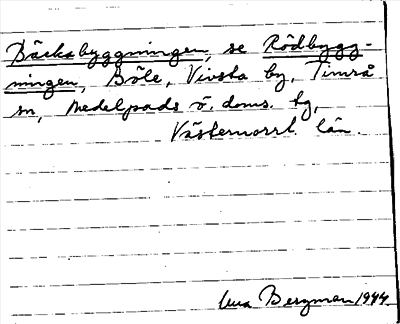 Bäckabyggningen, se Rödbygg-
ningen, Böle, Vivsta by, Timrå
sn, Medelpads ö. doms. tg,
Västernorrl. län.
Bergman 1944.